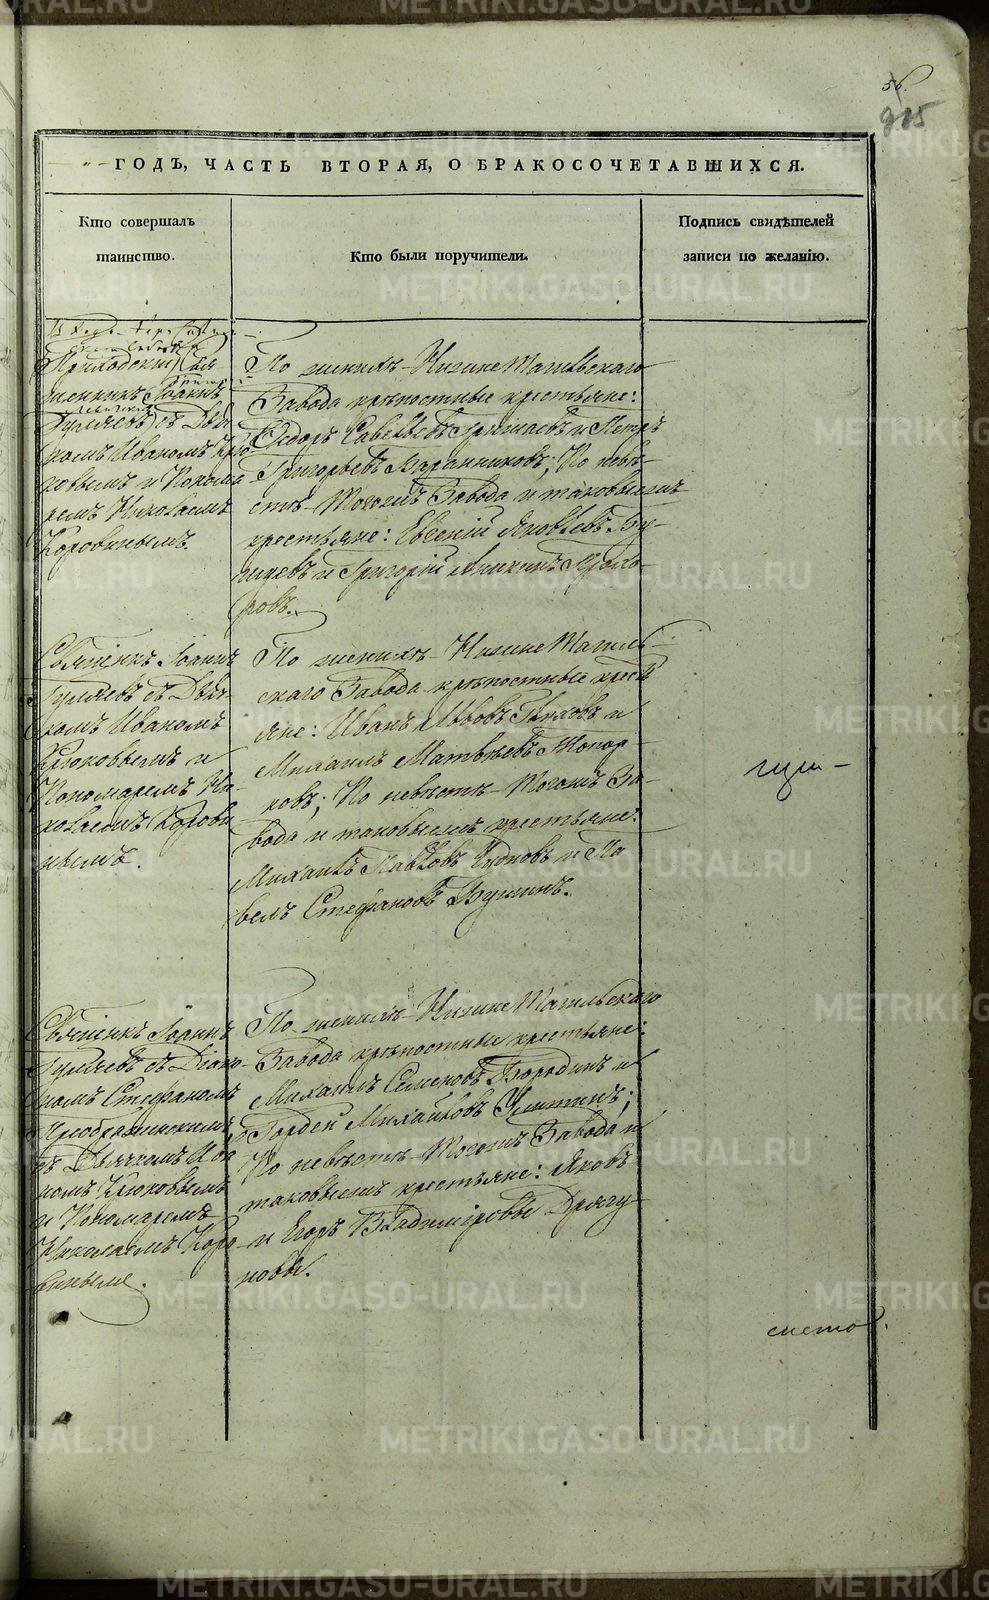 56.
915
ГОДЪ, ЧАСТЬ ВТОРАЯ, О БРАКОСОЧЕТАВШИХСЯ.
Кто совершалъ
таинство.
Кто были поручители.
Подпись свидѣтелей
записи по желанію.
Приходскій Свя
щенникъ Іоаннъ
Гуляевъ съ Дьяч
комъ Иваномъ Крю
ковымъ и Понома
ремъ Николаемъ
Коровинымъ.
По женихѣ Нижне Тагильскаго
Завода крѣпостные крестьяне:
Ѳедоръ Савельевъ Гришаевъ и Петръ
Григорьевъ Баранниковъ; По невѣ-
стѣ Тогожъ Завода и таковыежъ
крестьяне: Евсеній Яковлевъ Бу-
и Григорій Аникинъ
ровъ.
Священикъ Іоаннъ
Гуляевъ съ Дьяч
комъ Иваномъ
Крюковымъ и
Пономаремъ Ни-
колаемъ Корови
нымъ.
По женихѣ Нижне Тагиль-
скаго Завода крѣпостные кресть
яне: Иванъ Львовъ и
Михаилъ Матвѣевъ Топор-
ковъ; По невѣстѣ Тогожъ За-
вода и таковыежъ крестьяне:
Михаилъ Павловъ и Па
велъ Стефановъ
Священикъ Іоаннъ
Гуляевъ съ Діако-
номъ Стефаномъ
Преображенскимъ,
съ Дьячкомъ Ива
номъ Крюковымъ
и Пономаремъ
Николаемъ Коро
винымъ.
По женихѣ Нижне Тагильскаго
Завода крѣпостные крестьяне:
Михаилъ Семеновъ Бородинъ и
Гордей Михайловъ Улитинъ;
По невѣстѣ Тогожъ Завода и
таковыежъ крестьяне: Яковъ
и Егоръ Владиміровы Драгу
новы.
METRIKI.GASO-URAL.RU